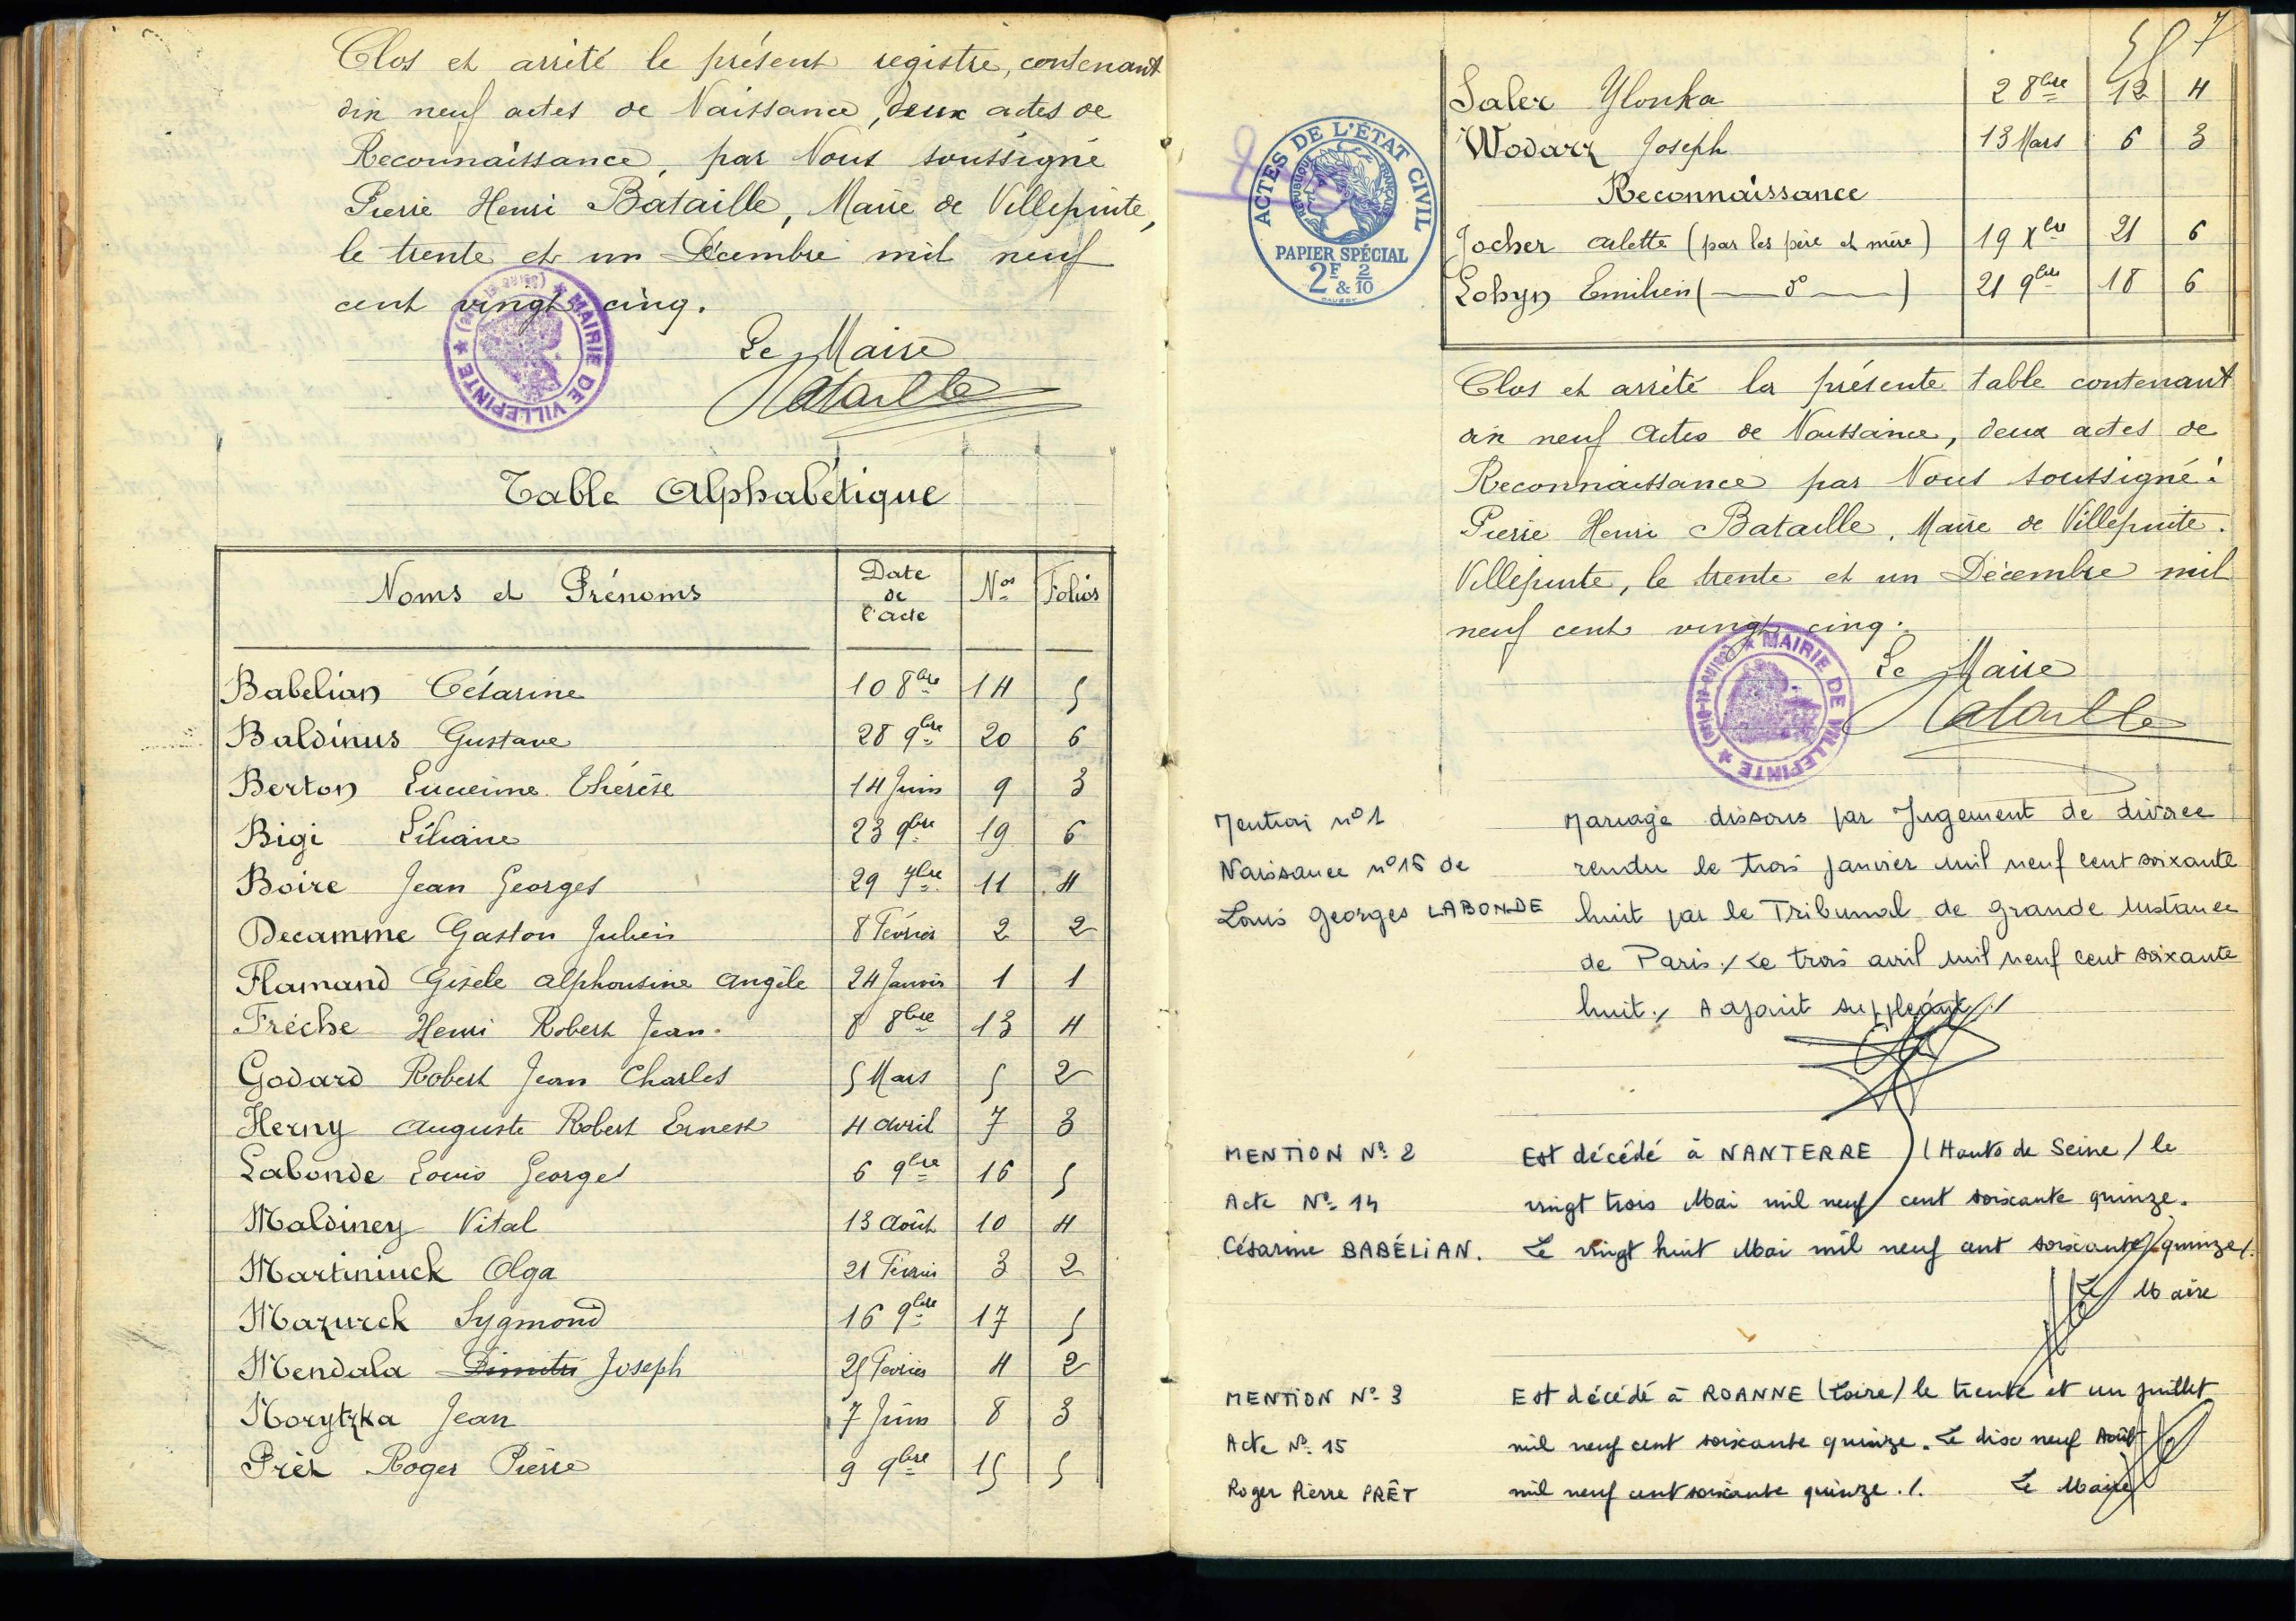 Clos et arrêté le présent registre, contenant
dix neuf actes de Naissance, deux actes de
Reconnaissance, par Nous soussigné
Pierre Henri Bataille, Maire de Villepinte,
le trente et un Décembre mil neuf
cent vingt cinq.
MAIRIE DE VILLEPINTE
Le Maire
Bataille
Table Alphabétique
Noms et Prénoms | Date de l'acte | Nos | Folios
Babelian Césarine 10 8bre 14 5
Baldinus Gustave 28 9bre 20 6
Berton Lucienne Thérèse 14 Juin 9 3
Bigi Liliane 23 9bre 19 6
Boire Jean Georges 29 7bre 11 4
Decamme Gaston Julien 8 Février 2 2
Flamand Gisèle Alphonsine Angèle 24 Janvier 1 1
Frèche Henri Robert Jean. 8 8bre 13 4
Godard Robert Jean Charles 5 Mars 5 2
Herny Auguste Robert Ernest 4 Avril 7 3
Labonde Louis Georges 6 9bre 16 5
Maldiney Vital 13 Août 10 4
Martiniuck Olga 21 Février 3 2
Mazurek Sygmond 16 9bre 17 5
Mendala Dimitri Joseph 25 Février 4 2
Norytzka Jean 7 Juin 8 3
Prêt Roger Pierre 9 9bre 15 5
7
Saler Ylonka 2 8bre 12 4
Wodarz Joseph 13 Mars 6 3
Reconnaissance
Jocher Arlette (par les père et mère) 19 Xbre 21 6
Lohyn Emilien (— do —) 21 9bre 18 6
ACTES DE L'ÉTAT CIVIL
RÉPUBLIQUE FRANÇAISE
PAPIER SPÉCIAL
2F & 2/10
Clos et arrêté la présente table contenant
dix neuf actes de Naissance, deux actes de
Reconnaissance par Nous soussigné:
Pierre Henri Bataille, Maire de Villepinte.
Villepinte, le trente et un Décembre mil
neuf cent vingt cinq.
MAIRIE DE VILLEPINTE
(SEINE-ET-OISE)
Le Maire
Bataille
Mention n°1
Naissance n°16 de
Louis Georges LABONDE
Mariage dissous par Jugement de divorce
rendu le trois janvier mil neuf cent soixante
huit par le Tribunal de Grande Instance
de Paris./ Le trois avril mil neuf cent soixante
huit./ Adjoint suppléant./
MENTION No. 2
Acte No. 14
Césarine BABÉLIAN.
Est décédé à NANTERRE (Hauts de Seine) le
vingt trois Mai mil neuf cent soixante quinze.
Le vingt huit Mai mil neuf cent soixante quinze/.
Le Maire
MENTION No. 3
Acte No. 15
Roger Pierre PRÊT
Est décédé à ROANNE (Loire) le trente et un juillet
mil neuf cent soixante quinze. Le dix neuf Août
mil neuf cent soixante quinze ./. Le Maire